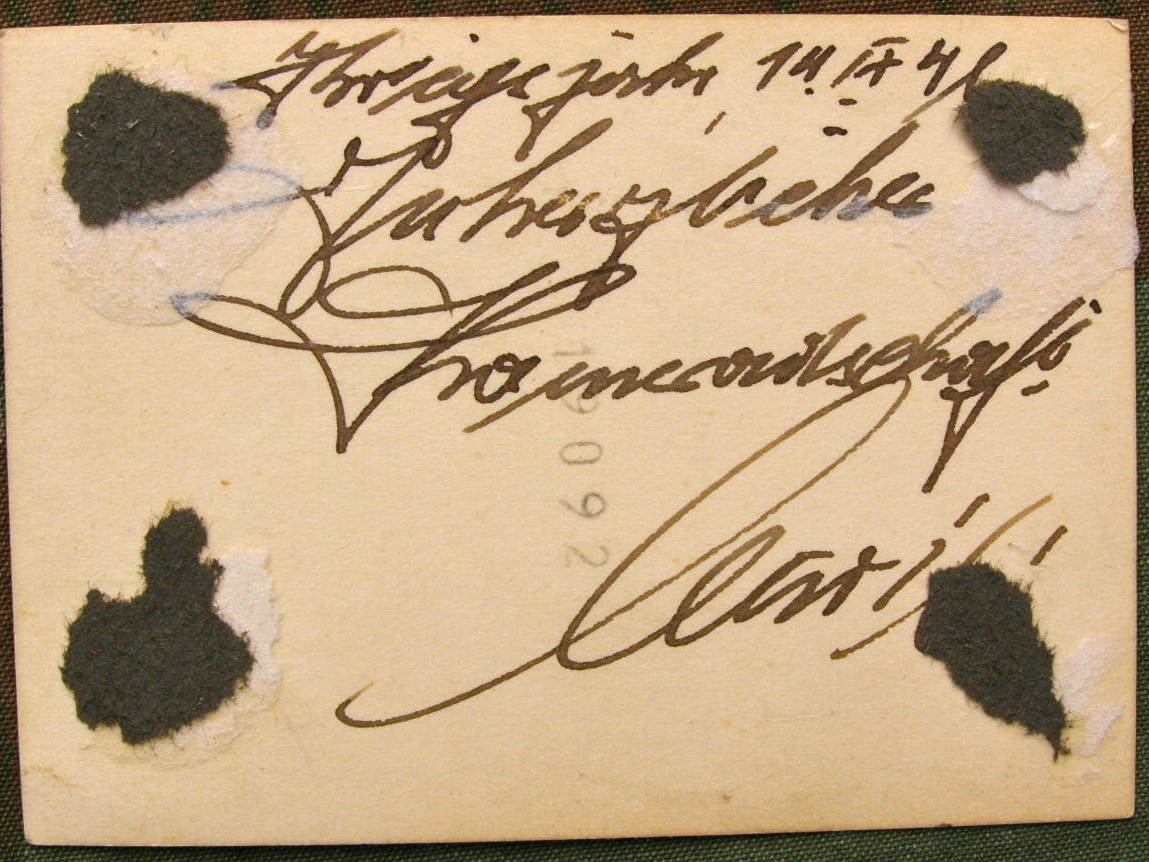 Kriegsjahr, 14. IX 41
In herzlicher
Kameradschaft
19092